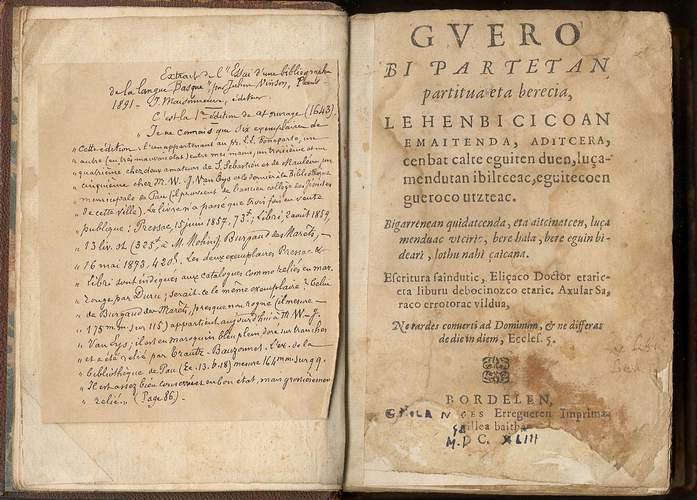 Extrait de l'"Essai d'une bibliographie
de la langue Basque" par Julien Vinson, Paris
1891 - J. Maisonneuve, éditeur.
C'est la 1re édition de cet ouvrage (1643).
" Je ne connais que six exemplaires de
" cette édition. l'un appartenant au pr. L. L. Bonaparte, un
" autre (en très mauvais état) entre mes mains, un troisième et un
" quatrième chez deux amateurs de S. Sébastien et de Mauléon, un
" cinquième chez M. W. J. Van Eys et le dernier à la Bibliothèque
" municipale de Pau (il provient de l'ancien collège des Jésuites
" de cette ville). Le livre n'a passé que trois fois en vente
" publique: Pressac, 15 juin 1857, 73f; Libri, 2 août 1859,
" 13 liv. st. (325f à M. Burgaud des Marets,
" 16 mai 1873, 420f. Les deux exemplaires Pressac &
" Libri sont indiqués aux catalogues comme reliés en mar.
" rouge par Duru; serait-ce le même exemplaire? Celui
" de Burgaud des Marets, presque non rogné (il mesure
" 175mm sur 115) appartient aujourd'hui à M. W. J.
" Van Eys; il est en maroquin bleu plein doré sur tranches
" et a été relié par Trautz-Bauzonnet. L'ex. de la
" bibliothèque de Pau (Ee. 13. b. 18) mesure 164mm sur 99.
" Il est assez bien conservé et en bon état, mais grossièrement
" relié." (Page 86).
GVERO
BI PARTETAN
partitua eta berecia,
LEHENBICICOAN
EMAITENDA, ADITCERA,
cenbat calte eguiten duen, luça-
mendutan ibiltceac, eguitecoen
gueroco utzteac.
Bigarrenean quidatcenda, eta aitcinatcen, luça
menduac vtciriz, bere hala, bere eguin bi-
deari, lothu nahi çaicana.
Escritura saindutic, Eliçaco Doctor etaric-
eta liburu debocinozco etaric. Axular Sa-
raco errotorac vildua,
Ne tardes conuerti ad Dominum, & ne differas
de die in diem, Eccles. 5.
BORDELEN,
G. MILANGES Erregueren Imprima-
çaillea baitha
M. D C. XLIII